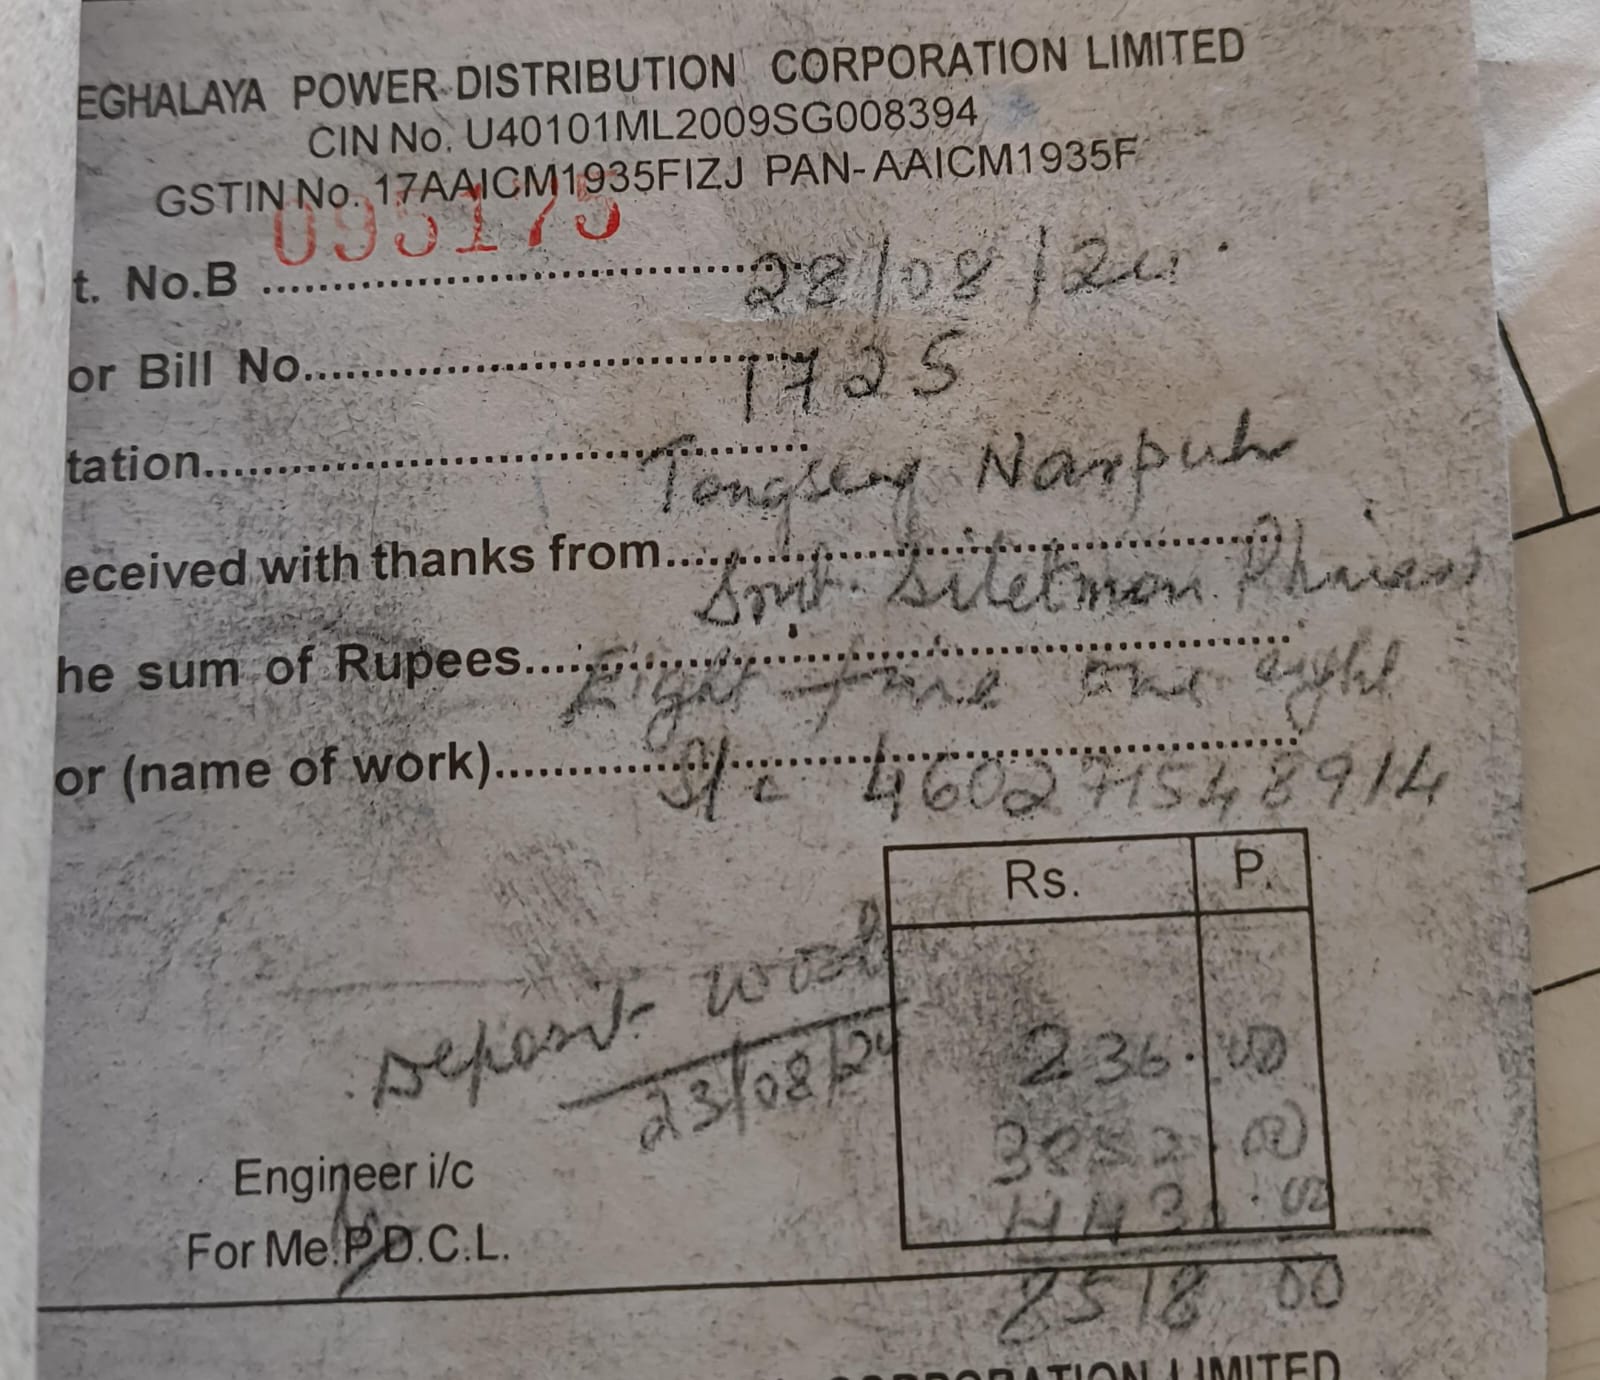 EGHALAYA POWER DISTRIBUTION CORPORATION LIMITED
CIN No. U40101ML2009SG008394
GSTIN No. 17AAICM1935FIZJ PAN-AAICM1935F
095175
t. No.B .......... 28/08/24.
or Bill No.......... 1725
tation.......... Narpuh
eceived with thanks from.......... Smt. Siletmon
he sum of Rupees.......... Eight five one eight
or (name of work).......... 460271548914
Rs. P.
Deposit work
23/08/24
236.00
Engineer i/c
For Me.P.D.C.L.
8518 00
CORPORATION LIMITED